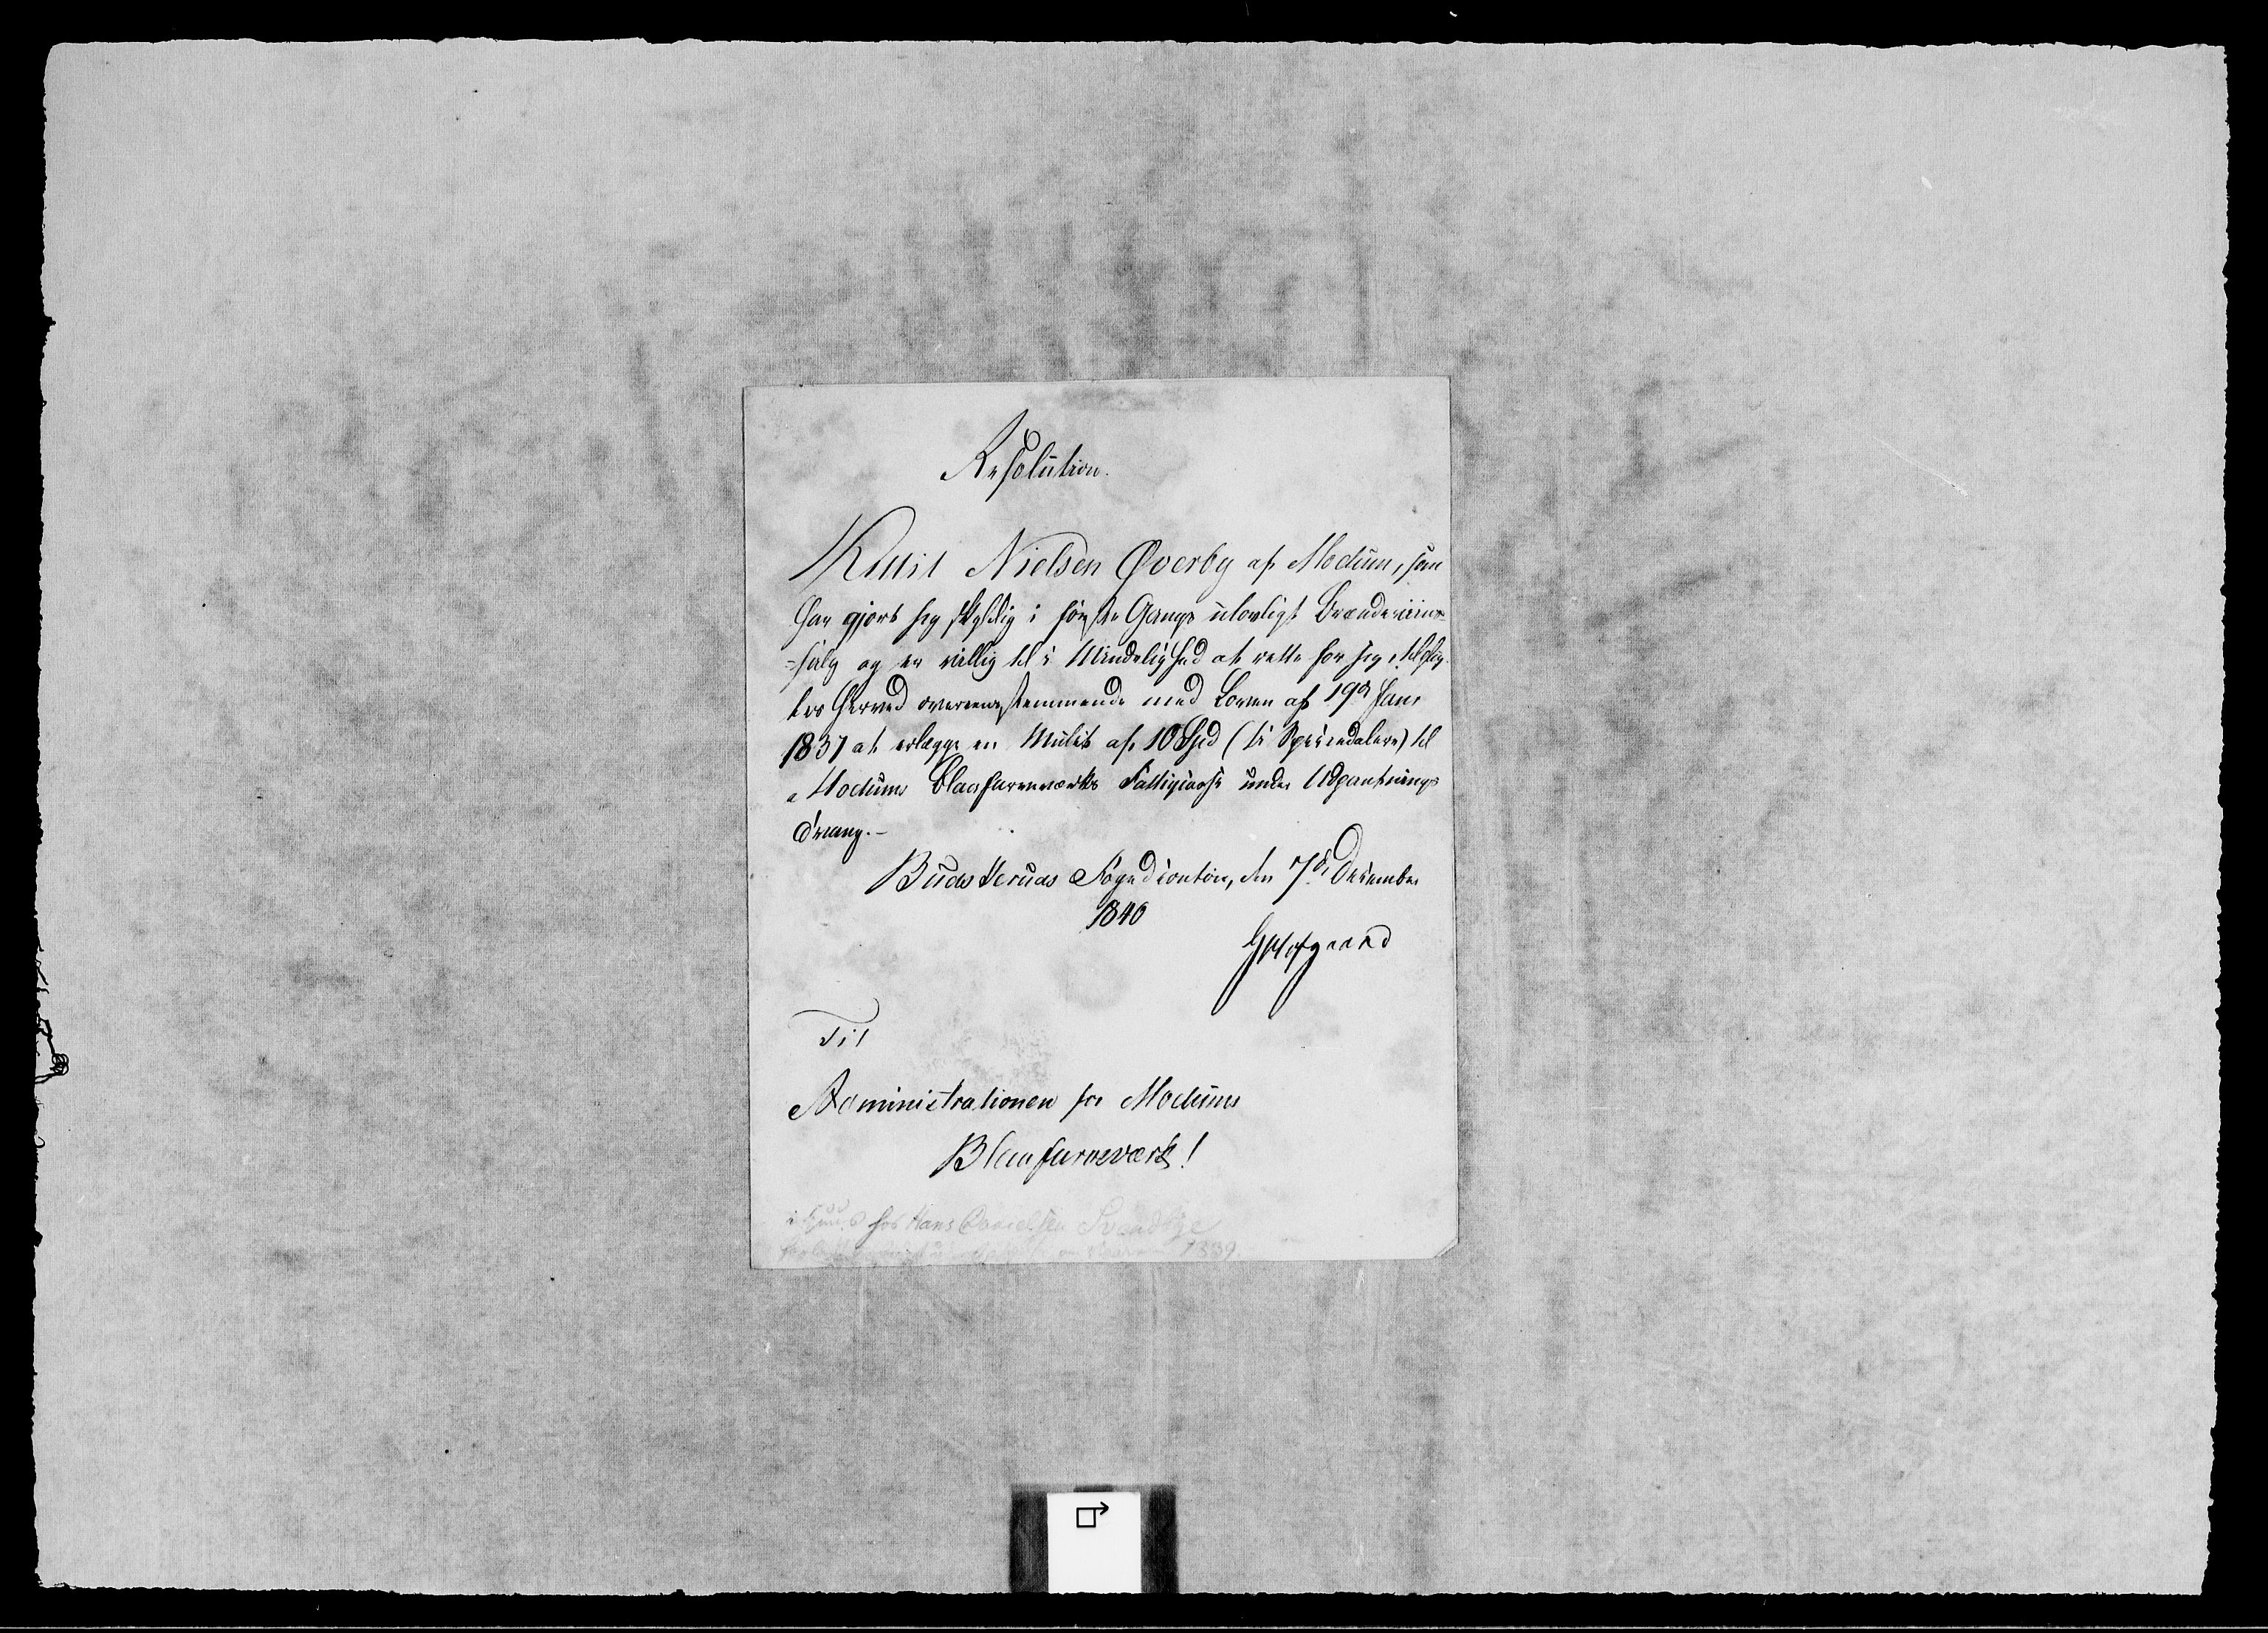 Resolution.
Kittil Nielsen Øverby af Modum, som
har gjort sig skyldig i første Gangs ulovligt Brændeviins-
=salg og er villig til i Mindelighed at rette for sig, tilplig-
tes herved overeensstemmende med Loven af 19de Juni
1837 at erlægge en Mulct af 10 Spd (ti Speciedalere) til
Modums Blaafarveværks Fattigcasse under Udpantnings
Tvang.-
Buskeruds Fogedcontoir, den 7de December
1840
Hofgaard
Til
Administrationen for Modums
Blaafarveværk!
hos Hans Svendbye
1839.